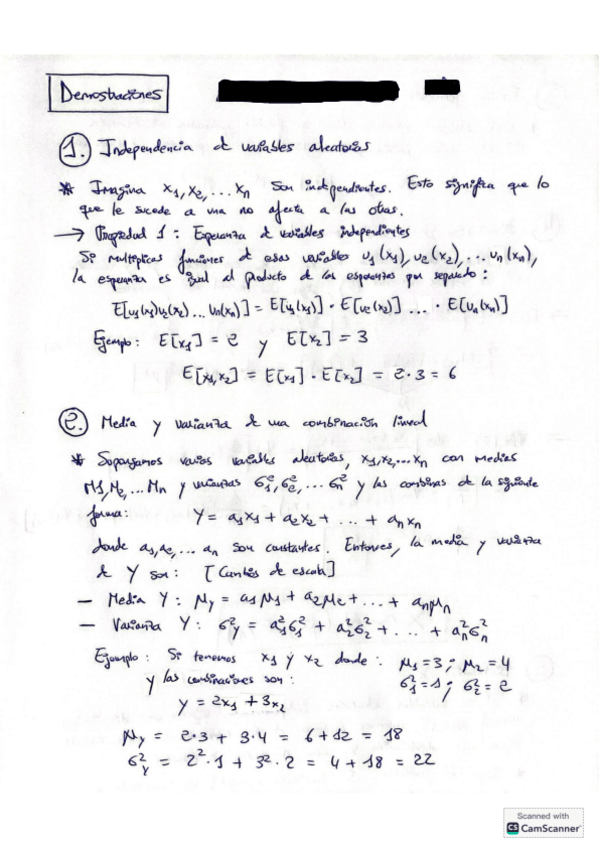 Demostraciones
1. Independencia d variables aleatorias
* Imagina x1, x2, ... xn son independientes. Esto significa que lo
que le sucede a una no afecta a las otras.
→ Propiedad 1: Esperanza d variables independientes
Si multiplicas funciones de esas variables u1(x1), u2(x2), ... un(xn),
la esperanza es igual al producto de las esperanzas por separado:
E[u1(x1)u2(x2)... un(xn)] = E[u1(x1)] · E[u2(x2)] ... · E[un(xn)]
Ejemplo: E[x1] = 2 y E[x2] = 3
E[x1,x2] = E[x1] · E[x2] = 2·3 = 6
2. Media y varianza d una combinación lineal
* Supongamos varias variables aleatorias, x1, x2, ... xn con medias
M1, M2, ... Mn y varianzas σ1², σ2², ... σn² y las combinas de la siguiente
forma: Y = a1x1 + a2x2 + ... + anxn
donde a1, a2, ... an son constantes. Entonces, la media y varianza
d Y son: [Cambios de escala]
- Media Y: μy = a1μ1 + a2μ2 + ... + anμn
- Varianza Y: σ²y = a1²σ1² + a2²σ2² + ... + an²σn²
Ejemplo: Si tenemos x1 y x2 donde: μ1 = 3; μ2 = 4
y las combinaciones son: σ1² = 1; σ2² = 2
y = 2x1 + 3x2
μy = 2·3 + 3·4 = 6 + 12 = 18
σ²y = 2²·1 + 3²·2 = 4 + 18 = 22
Scanned with
CS CamScanner